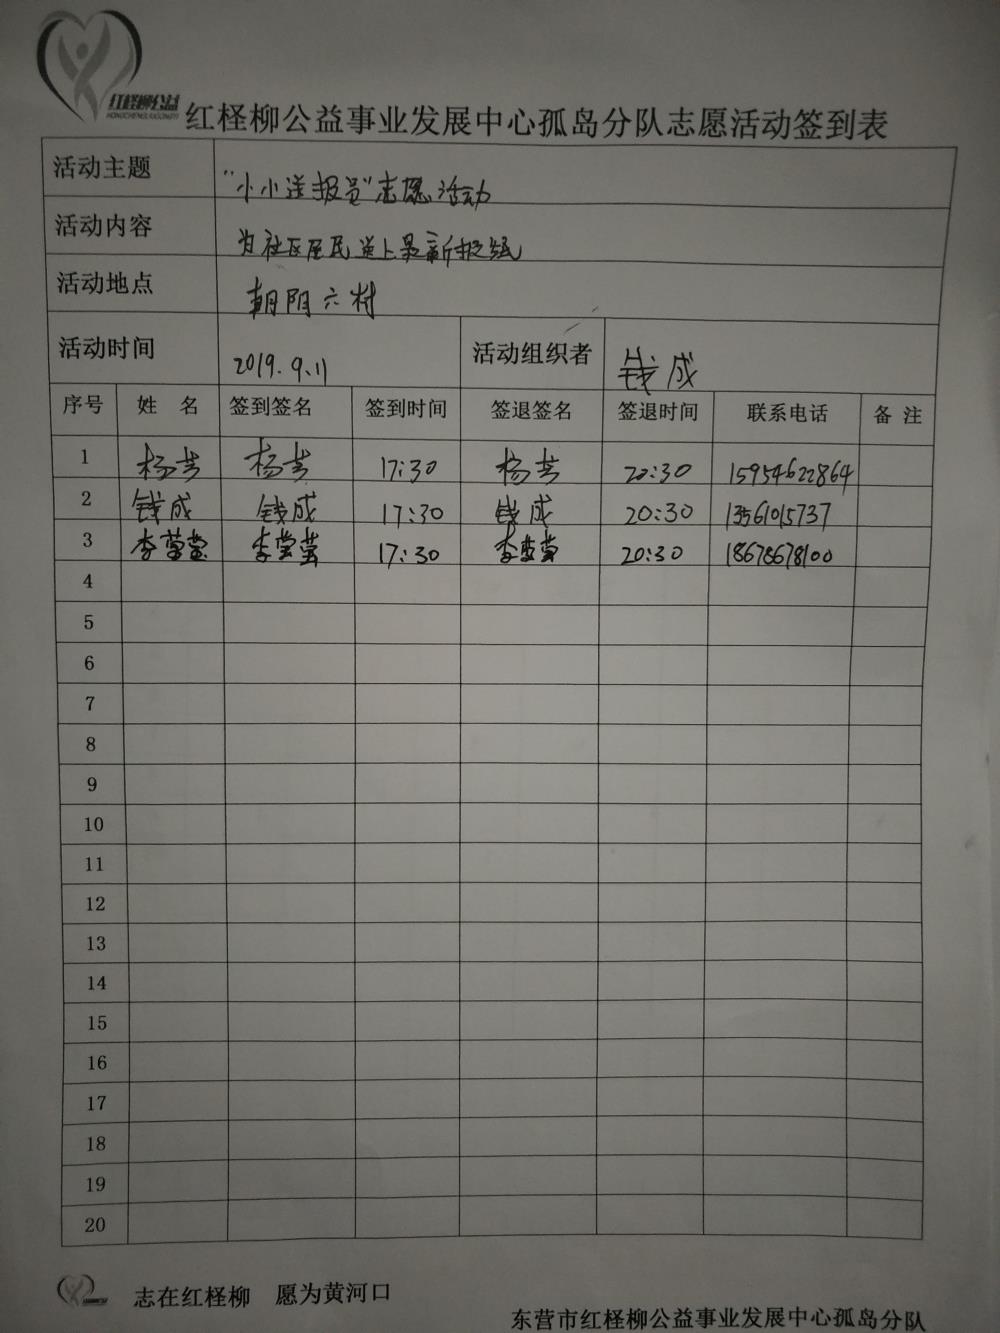 红柽柳公益
HONGCHENGLIUGONGYI
红柽柳公益事业发展中心孤岛分队志愿活动签到表
活动主题 “小小送报员”志愿活动
活动内容 为社区居民送上最新报纸
活动地点 朝阳六村
活动时间 2019.9.11 活动组织者 钱成
序号 姓 名 签到签名 签到时间 签退签名 签退时间 联系电话 备 注
1 杨芸 杨芸 17:30 杨芸 20:30 15954622864
2 钱成 钱成 17:30 钱成 20:30 13561015737
3 李莹莹 李莹莹 17:30 李莹莹 20:30 18678678100
4
5
6
7
8
9
10
11
12
13
14
15
16
17
18
19
20
志在红柽柳 愿为黄河口
东营市红柽柳公益事业发展中心孤岛分队